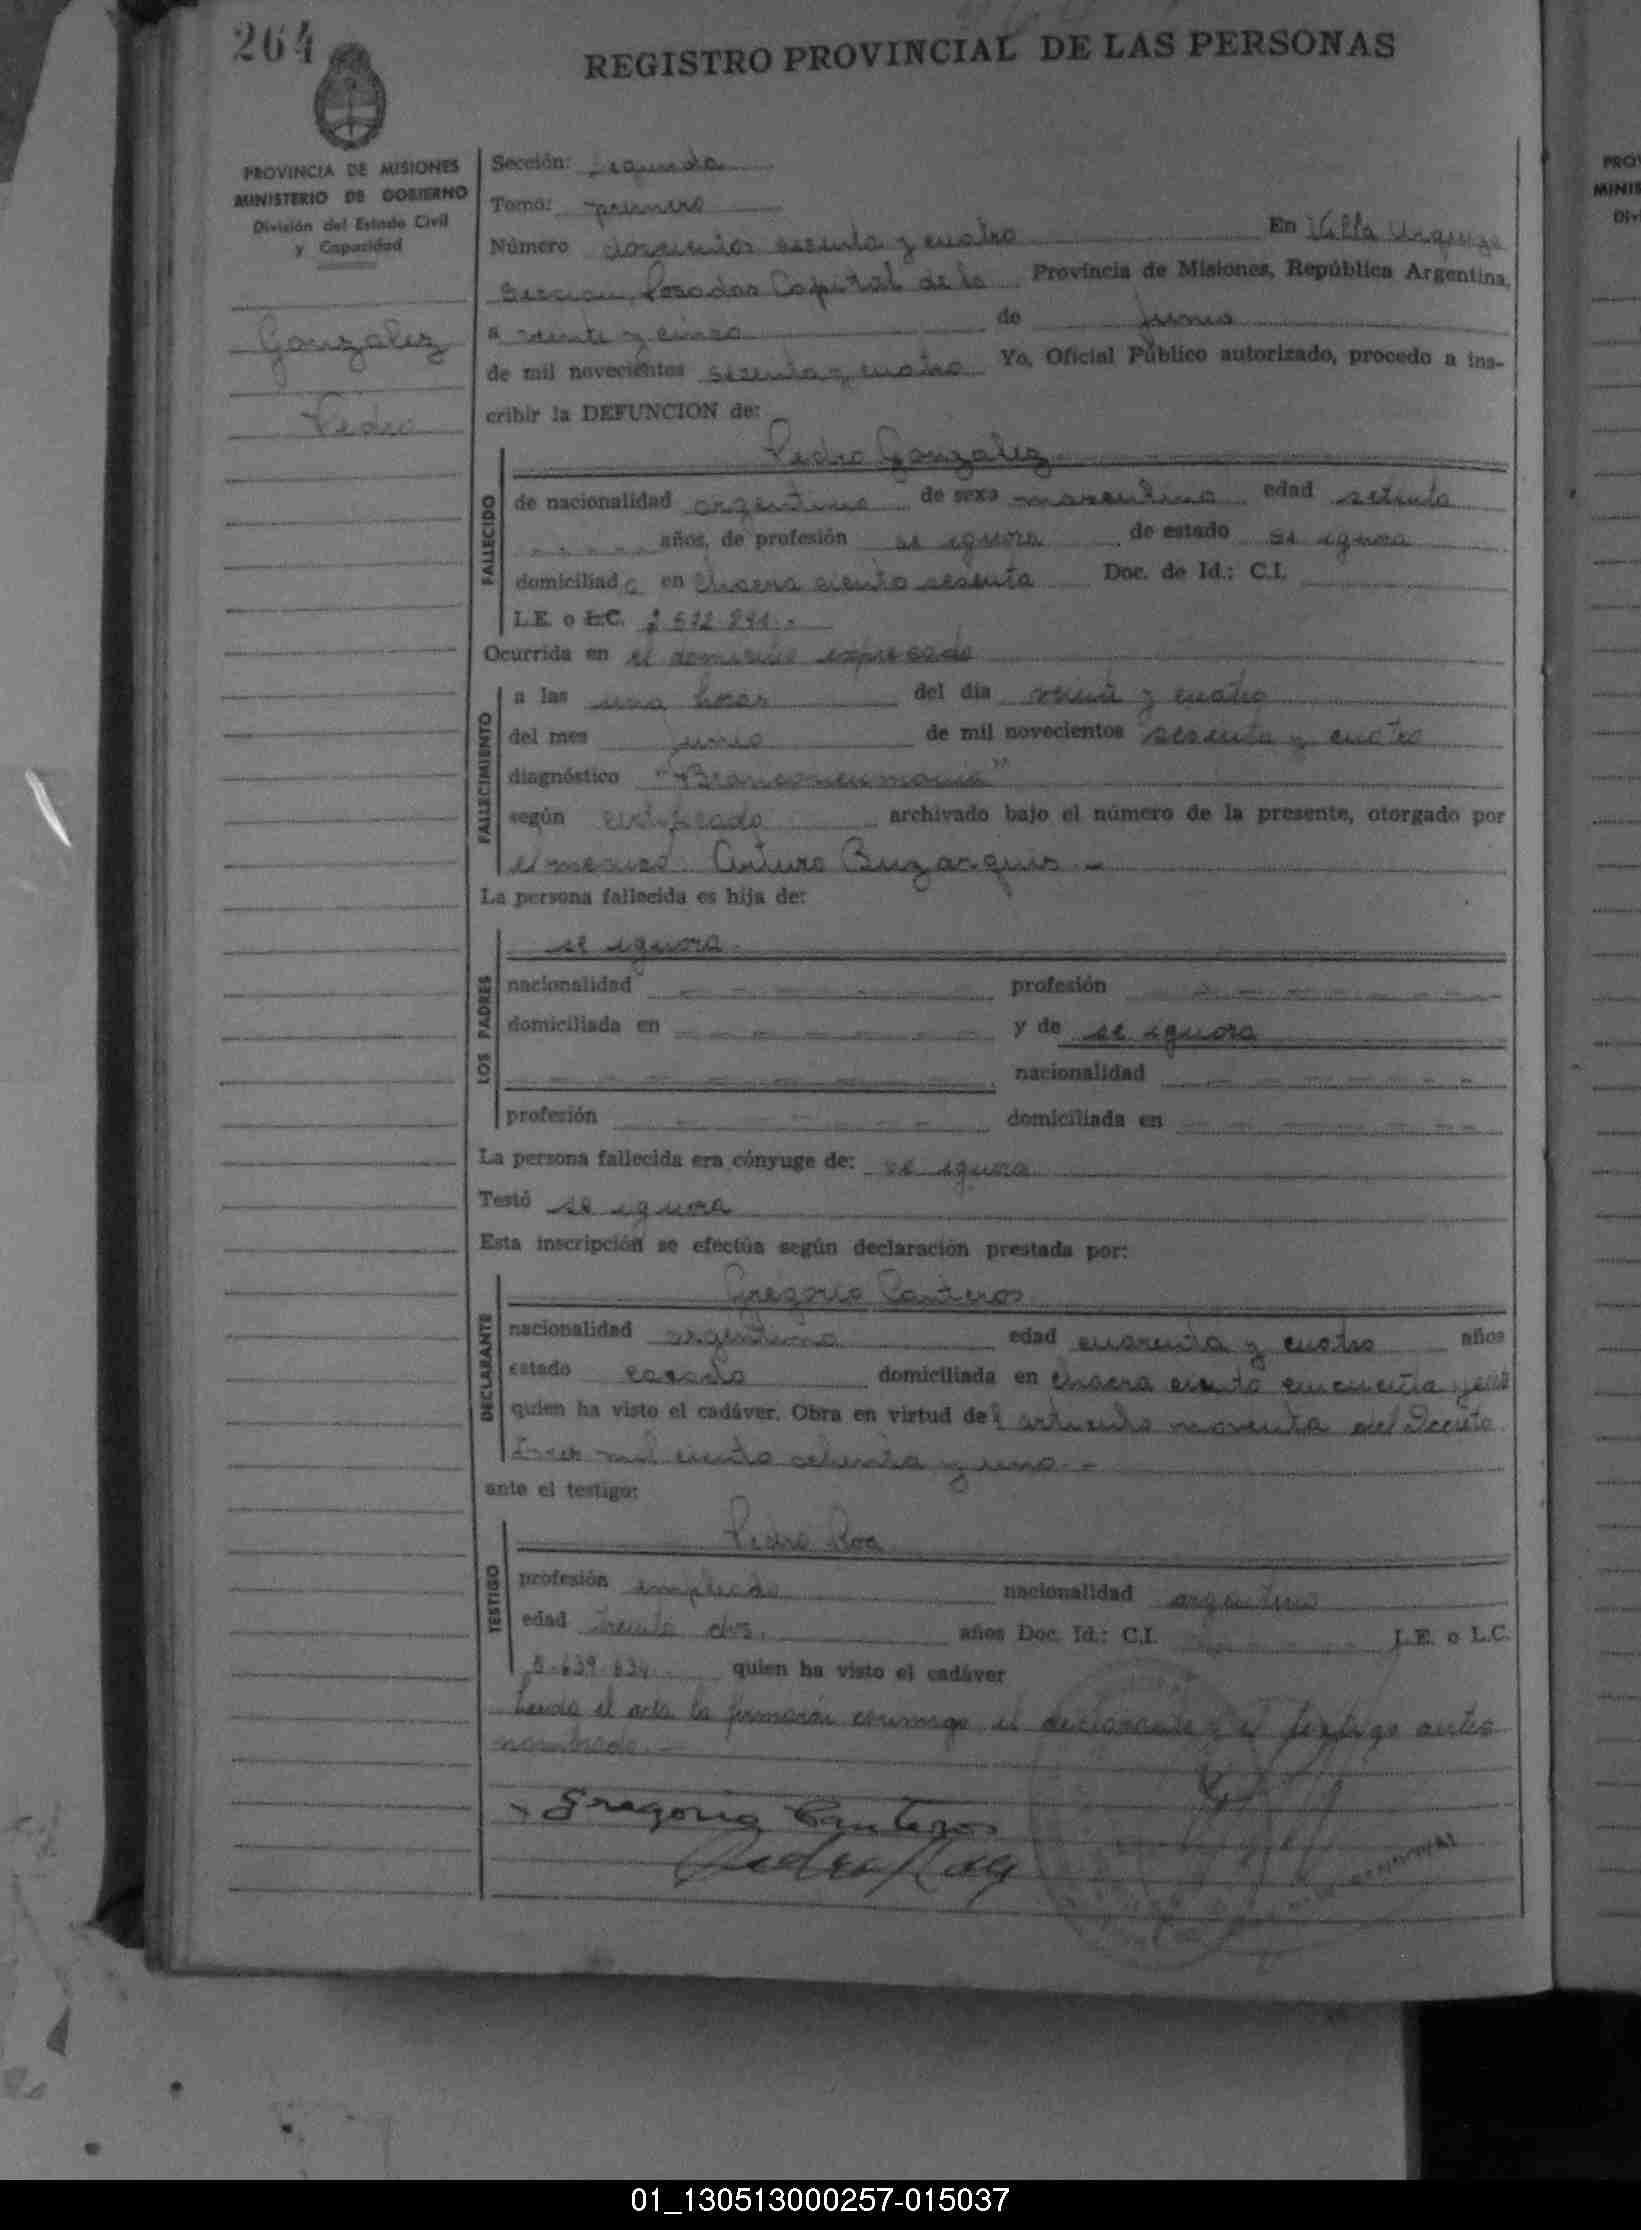 264
REGISTRO PROVINCIAL DE LAS PERSONAS
PROVINCIA DE MISIONES
MINISTERIO DE GOBIERNO
División del Estado Civil
y Capacidad
Gonzalez
Pedro
Sección: Segunda
Tomo: primero
Número doscientos sesenta y cuatro En Villa Urquiza
Seccion Posadas Capital de la Provincia de Misiones, República Argentina,
a veinte y cinco de Junio
de mil novecientos sesenta y cuatro Yo, Oficial Público autorizado, procedo a ins-
cribir la DEFUNCION de:
Pedro Gonzalez
FALLECIDO
de nacionalidad argentino de sexo masculino edad setenta
años, de profesión se ignora de estado se ignora
domiciliado en Chacra ciento sesenta Doc. de Id.: C.I.
L.E. o L.C.
Ocurrida en el domicilio expresado
FALLECIMIENTO
a las una horas del día veinte y cuatro
del mes junio de mil novecientos sesenta y cuatro
diagnóstico "Bronconeumonia"
según certificado archivado bajo el número de la presente, otorgado por
el medico Arturo Buzarquis. -
La persona fallecida es hija de:
LOS PADRES
se ignora.
nacionalidad - - - - - profesión - - - - -
domiciliada en - - - - - y de se ignora
- - - - - - - nacionalidad - - - - -
profesión - - - - - domiciliada en - - - - -
La persona fallecida era cónyuge de: se ignora
Testó se ignora
Esta inscripción se efectúa según declaración prestada por:
DECLARANTE
Gregorio Canteros
nacionalidad argentino edad cuarenta y cuatro años
estado casado domiciliada en Chacra ciento cincuenta
quien ha visto el cadáver. Obra en virtud del articulo noventa del Decreto
Tres mil ciento ochenta y uno. -
ante el testigo:
TESTIGO
Pedro Roa
profesión empleado nacionalidad argentino
edad treinta dos. años Doc. Id.: C.I. L.E. o L.C.
quien ha visto el cadáver
Leida el acta la firmarón conmigo el declarante y el testigo antes
nombrado. -
Gregorio Canteros
Pedro Roa
PRO
MINIS
Div
01_130513000257-015037